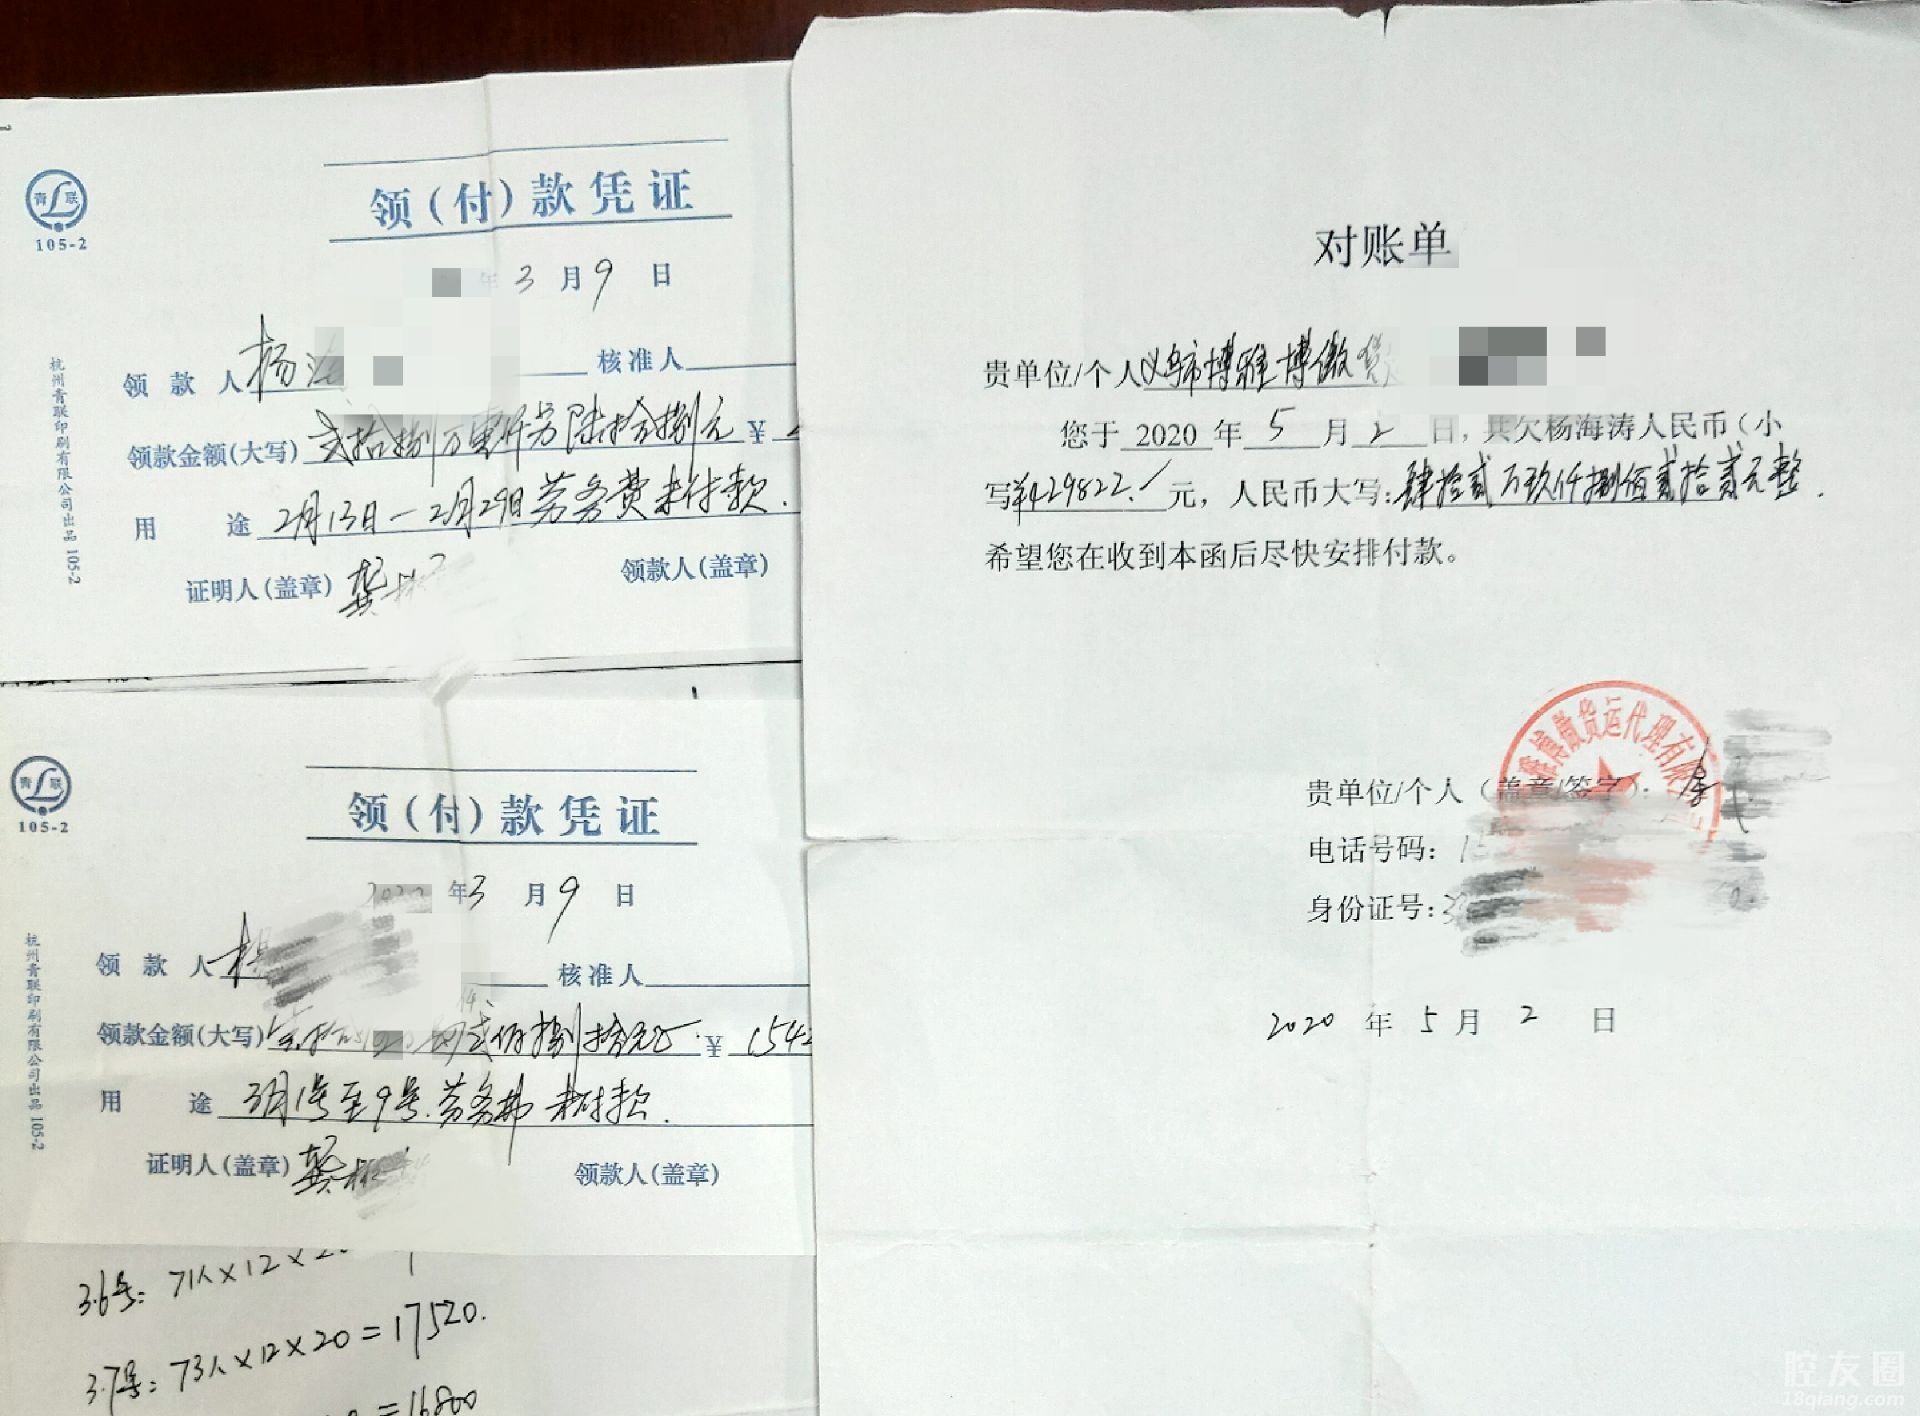 青 联
105-2
领(付)款凭证
年 3 月 9 日
领款人 杨 核准人
领款金额(大写) 贰拾捌万 仟 陆拾捌元 ¥
用途 2月13日-2月29日劳务费未付款.
证明人(盖章) 龚 领款人(盖章)
杭州青联印刷有限公司出品 105-2
青 联
105-2
领(付)款凭证
2020 年 3 月 9 日
领款人 杨 核准人
领款金额(大写) 壹拾 贰佰捌拾元 ¥ 154
用途 3月1号至9号.劳务费 未付款.
证明人(盖章) 龚 领款人(盖章)
杭州青联印刷有限公司出品 105-2
3.6号: 71人×12×2
3.7号: 73人×12×20=17520.
=16800
对账单
贵单位/个人 义乌市博雅博傲货
您于 2020 年 5 月 2 日,共欠杨海涛人民币(小
写¥429822. 元,人民币大写:肆拾贰万玖仟捌佰贰拾贰元整.
希望您在收到本函后尽快安排付款。
雅博傲货运代理有限
贵单位/个人(盖章/签字):
电话号码:
身份证号:
2020 年 5 月 2 日
腔友圈
18qiang.com